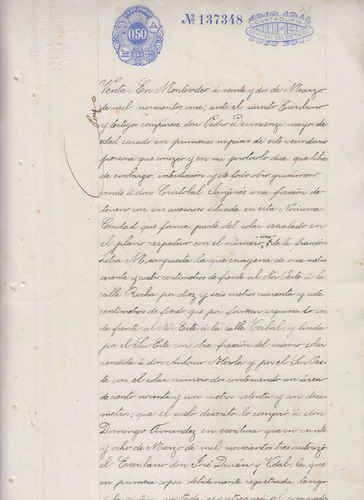 0.50
Nº 137348
CONTADURIA
Venta. En Montevideo á veinte y dos de Marzo
de mil novecientos once; ante el infrascrito Escribano
y testigos comparece don Pedro mayor de
edad, casado en primeras nupcias de este vecindario
persona que conozco y en mi protocolo dice: que libre
de embargo, interdicción y de todo otro gravamen
vende á don Cristobal Sanjinés una fracción de
terreno con sus accesorios situada en esta Novísima
Ciudad que forma parte del solar señalado en
el plano respectivo con el número de la fracción
letra M, compuesta la que enajena de metros
setenta y cuatro centímetros de frente al Nor Oeste á la
calle Rocha por diez y seis metros cuarenta y siete
centímetros de fondo que por formar esquina lo es
de frente al Nor Este á la calle Cuibal, y linda
por el Sur Este con otra fracción del mismo solar
vendida á don Antonio Merola y por el Sur Oes-
te con el solar número dos conteniendo un área
de ciento noventa y un metros setenta y un decí
metros; que el suelo descrito lo compró á don
Domingo Fernandez en escritura que en veinte
y ocho de Marzo de mil novecientos tres autorizó
el Escribano don José Durán y Vidal, la que
en primera copia debidamente registrada tengo
á la vista